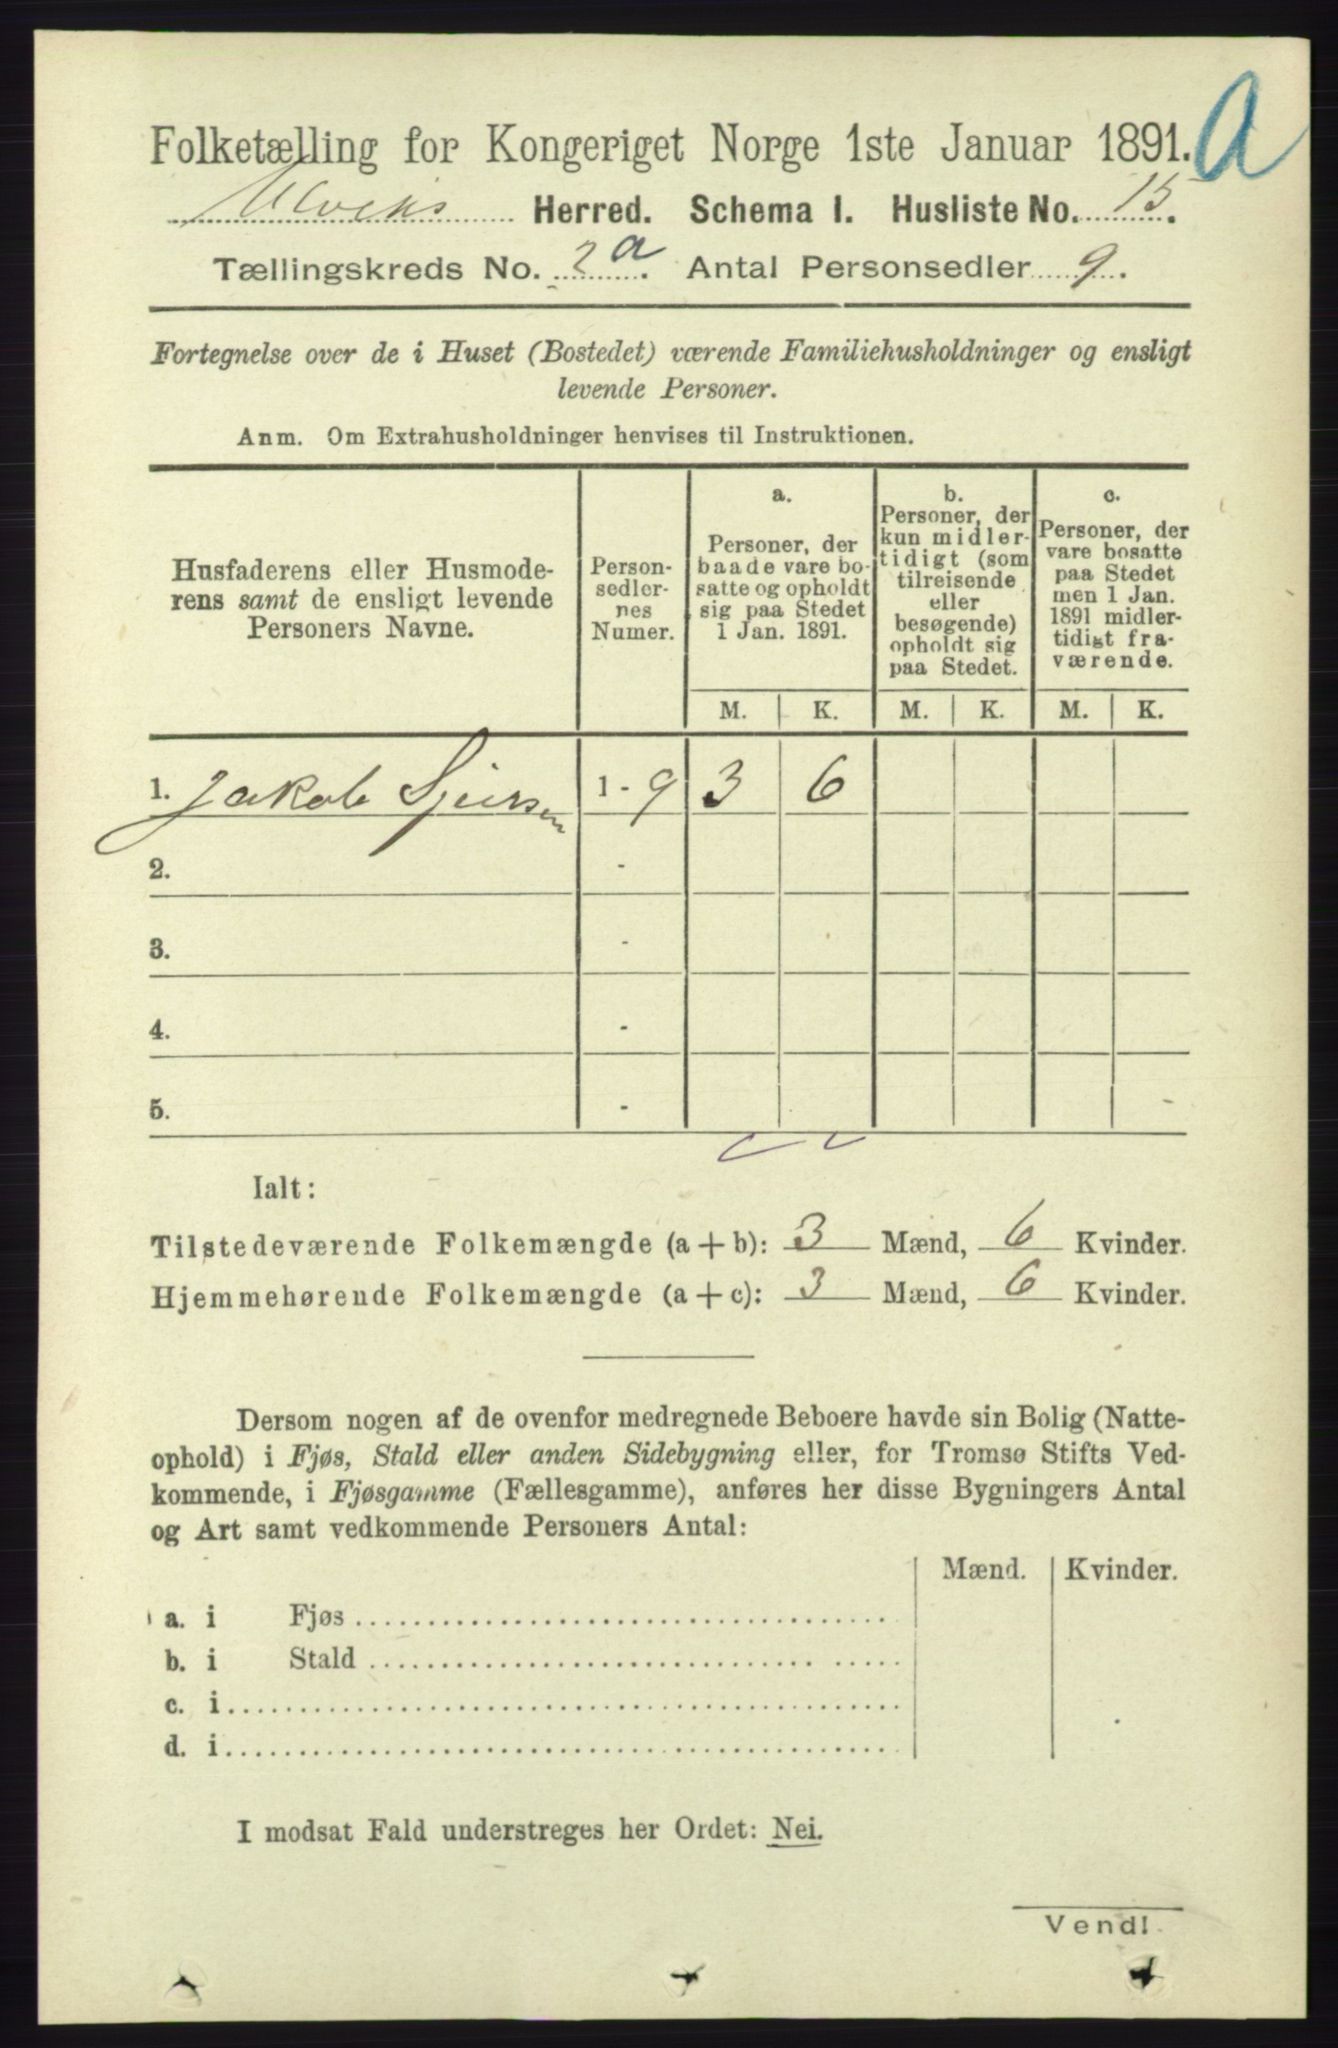 A
Folketælling for Kongeriget Norge 1ste Januar 1891.
Ulviks Herred. Schema I. Husliste No. 15.
Tællingskreds No. 2a. Antal Personsedler 9.
Fortegnelse over de i Huset (Bostedet) værende Familiehusholdninger og ensligt
levende Personer.
Anm. Om Extrahusholdninger henvises til Instruktionen.
Husfaderens eller Husmode-
rens samt de ensligt levende
Personers Navne.
Person-
sedler-
nes
Numer.
a.
Personer, der
baade vare bo-
satte og opholdt
sig paa Stedet
1 Jan. 1891.
b.
Personer, der
kun midler-
tidigt (som
tilreisende
eller
besøgende)
opholdt sig
paa Stedet.
c.
Personer, der
vare bosatte
paa Stedet
men 1 Jan.
1891 midler-
tidigt fra-
værende.
M. K. M. K. M. K.
1. Jakob Sjursen 1 - 9 3 6
2. -
3. -
4. -
5. -
Ialt:
Tilstedeværende Folkemængde (a + b): 3 Mænd, 6 Kvinder.
Hjemmehørende Folkemængde (a + c): 3 Mænd, 6 Kvinder.
Dersom nogen af de ovenfor medregnede Beboere havde sin Bolig (Natte-
ophold) i Fjøs, Stald eller anden Sidebygning eller, for Tromsø Stifts Ved-
kommende, i Fjøsgamme (Fællesgamme), anføres her disse Bygningers Antal
og Art samt vedkommende Personers Antal:
Mænd. Kvinder.
a. i Fjøs
b. i Stald
c. i
d. i
I modsat Fald understreges her Ordet: Nei.
Vend!